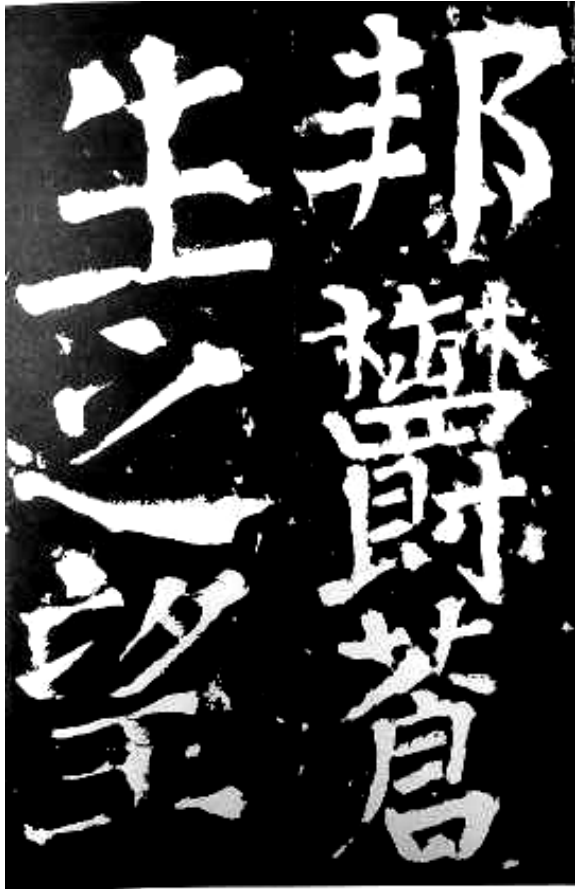 邦鬱蒼
生之望